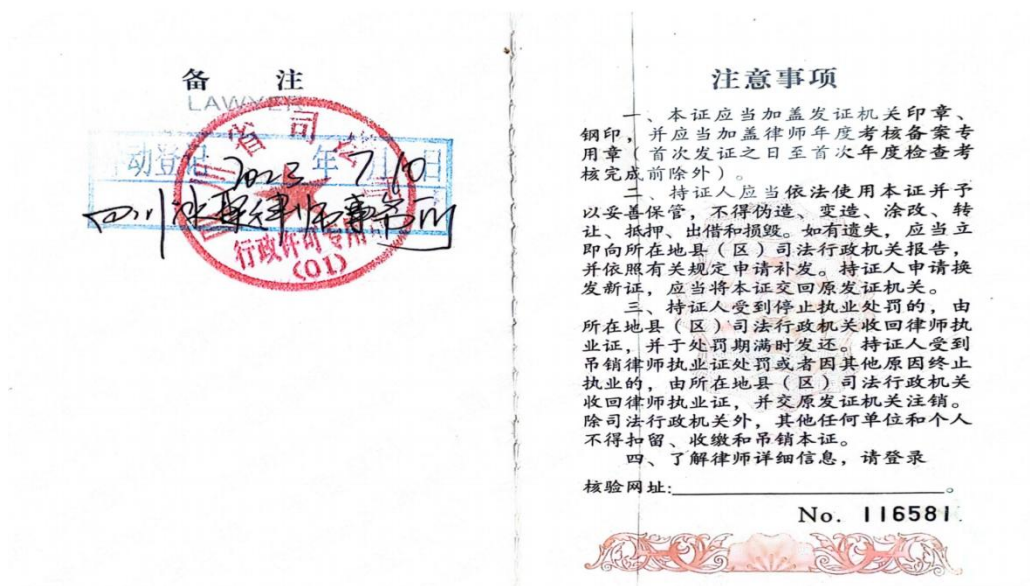 备 注
LAWYER
省司
动登记 2023年7月10日
四川 律师事务所
行政许可专用
(01)
注意事项
一、本证应当加盖发证机关印章、
钢印，并应当加盖律师年度考核备案专
用章（首次发证之日至首次年度检查考
核完成前除外）。
二、持证人应当依法使用本证并予
以妥善保管，不得伪造、变造、涂改、转
让、抵押、出借和损毁。如有遗失，应当立
即向所在地县（区）司法行政机关报告，
并依照有关规定申请补发。持证人申请换
发新证，应当将本证交回原发证机关。
三、持证人受到停止执业处罚的，由
所在地县（区）司法行政机关收回律师执
业证，并于处罚期满时发还。持证人受到
吊销律师执业证处罚或者因其他原因终止
执业的，由所在地县（区）司法行政机关
收回律师执业证，并交原发证机关注销。
除司法行政机关外，其他任何单位和个人
不得扣留、收缴和吊销本证。
四、了解律师详细信息，请登录
核验网址:＿＿＿＿＿＿＿＿。
No. 116581